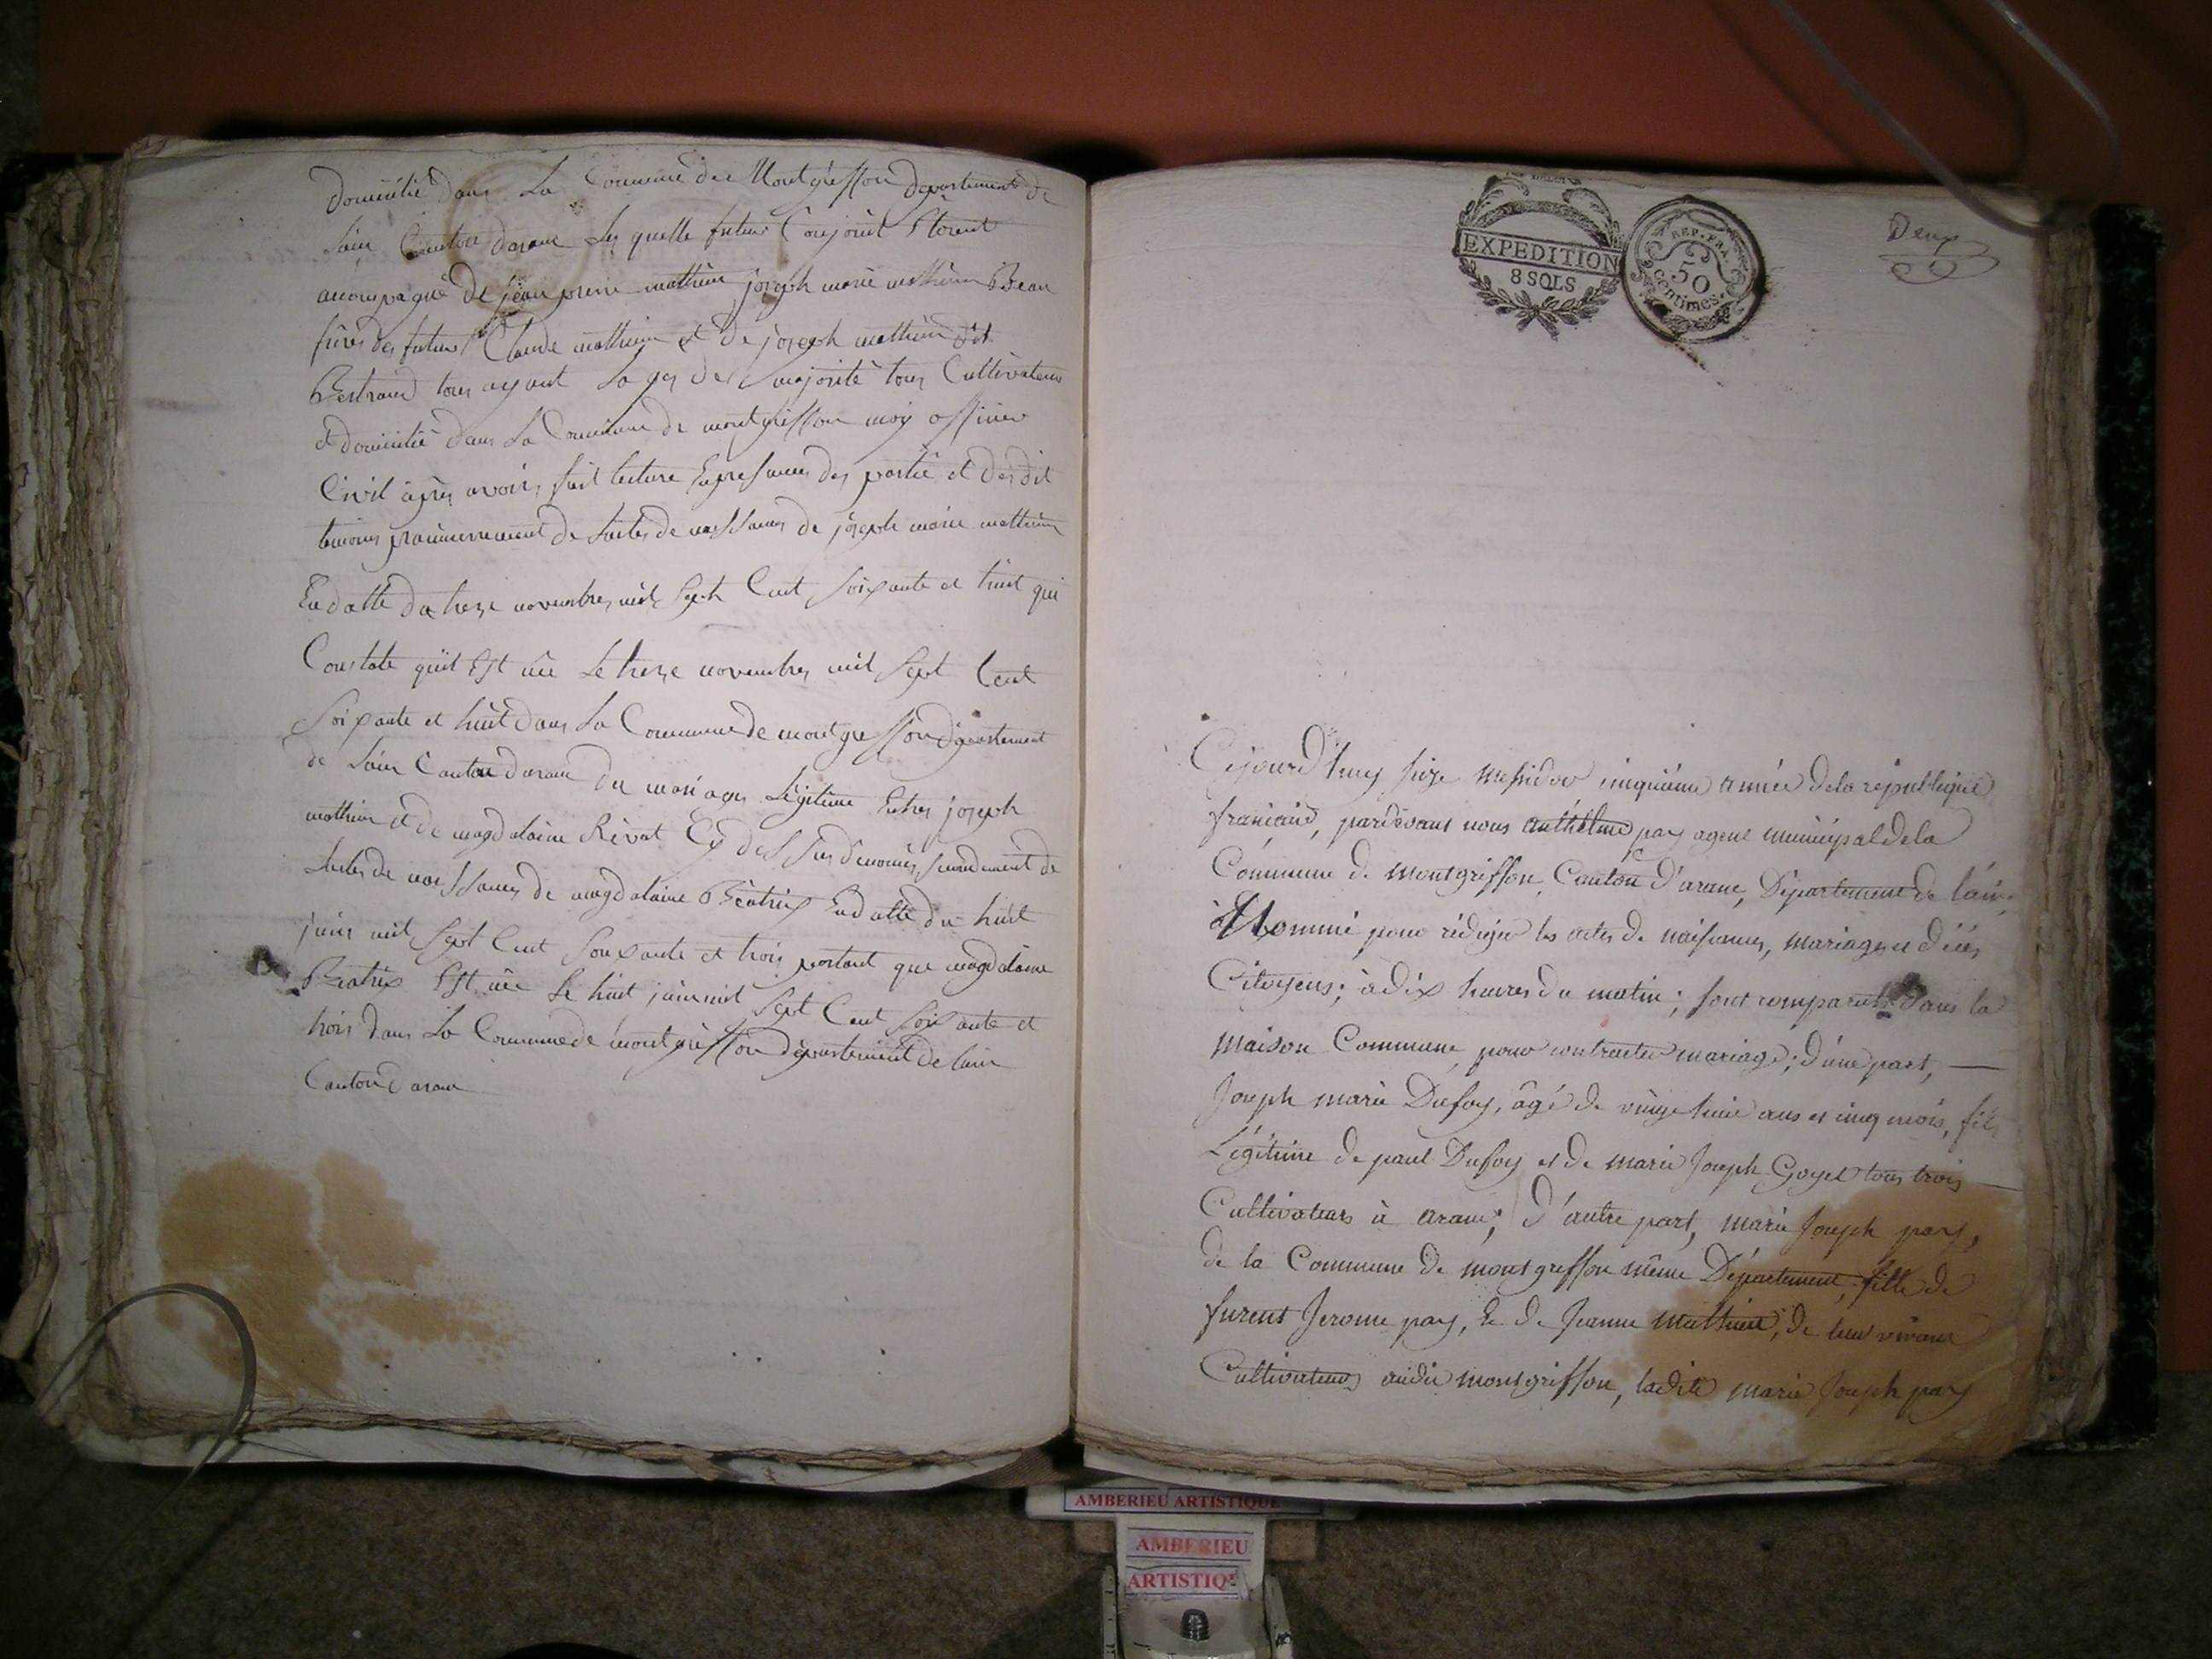 domicilié dans La Commune de Montgriffon departement de
Lain Canton darane Les quelle futur Conjoint Etoient
accompagné de jean pierre mathieu joseph marie mathieu Beau
frere des futur Claude mathieu et de joseph mathieu dit
Bertrand tous ayant La ges de majorité tous Cultivateur
et domicilié dans La Commune de montgriffon moy officier
Civil après avoir fait lecture En presances des partie et des dit
temoins premierement de Lactes de naissances de joseph marie mathieu
En datte du treze novembres mil Sept Cent soixante et huit qui
Constate qu'il Est née Le treze novembres mil Sept Cent
Soixante et huit dans La Commune de montgriffon departement
de Lain Canton darane du mariages Légitime Entres joseph
mathieu et de magdelaine Rivat Cy des sus denomés secondement de
Lactes de naissances de magdelaine Béatrix En datte du huit
juin mil Sept Cent Soixante et trois portant que magdelaine
Beatrix Est née Le huit juin mil Sept Cent Soixante et
trois dans La Commune de montgriffon departement de Lain
Canton darane
EXPEDITION
8 SOLS
REP. FRA.
50
centimes.
Deux
Cejourd'huy seize messidor cinquième année de la république
francaise, pardevant nous anthelme pay agent municipal de la
Commune de montgriffon, Canton d'arane, Département de l'ain,
Nommé pour rédiger les actes de naissances, mariages et décès
Citoyens; à dix heures du matin; sont comparuts dans la
maison Commune pour contracter mariage; d'une part, —
Joseph marie Dufoy, âgé de vingt huit ans et cinq mois, fils
Légitime de paul Dufoy et de marie Joseph Goyet tous trois —
Cultivateurs à arane; d'autre part, marie Joseph pay,
de la Commune de montgriffon même Département, fille de
furent Jerome pay, & de Jeanne mathieu, de leur vivant
Cultivateurs audit montgriffon, ladite marie Joseph pay
AMBERIEU ARTISTIQUE
AMBERIEU
ARTISTIQ